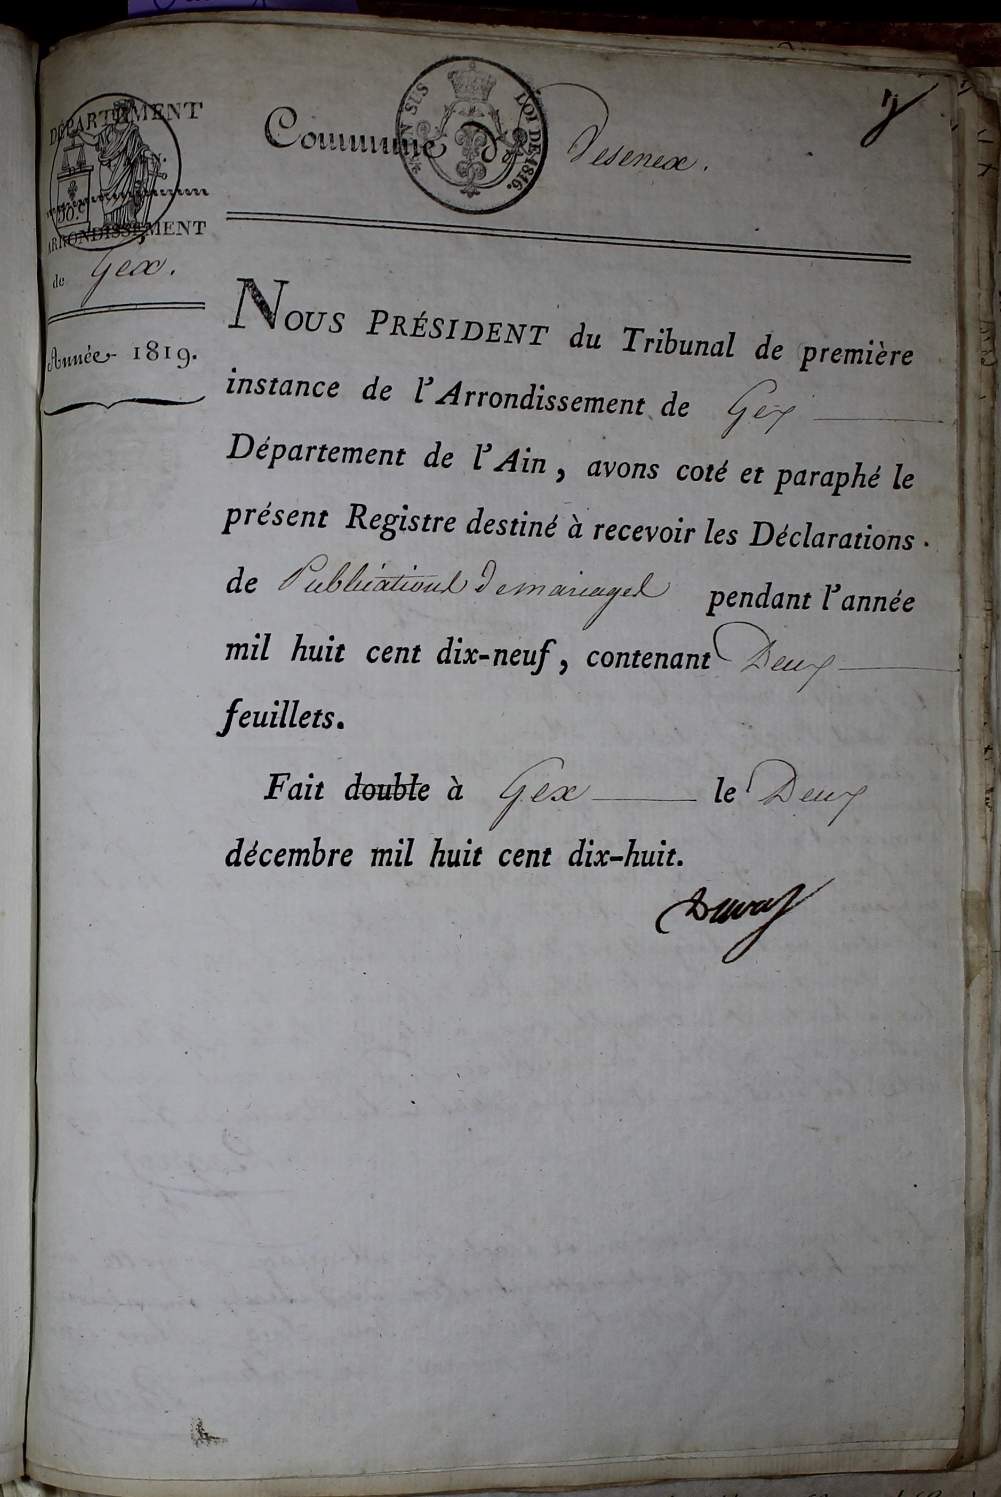 DÉPARTEMENT
50.C
ARRONDISSEMENT
de Gex.
Année 1819.
EN SUS
LOI DE 1816.
Commune de Vesenex.
NOUS PRÉSIDENT du Tribunal de première
instance de l'Arrondissement de Gex
Département de l'Ain, avons coté et paraphé le
présent Registre destiné à recevoir les Déclarations
de Publications de mariages pendant l'année
mil huit cent dix-neuf, contenant Deux
feuillets.
Fait double à Gex le Deux
décembre mil huit cent dix-huit.